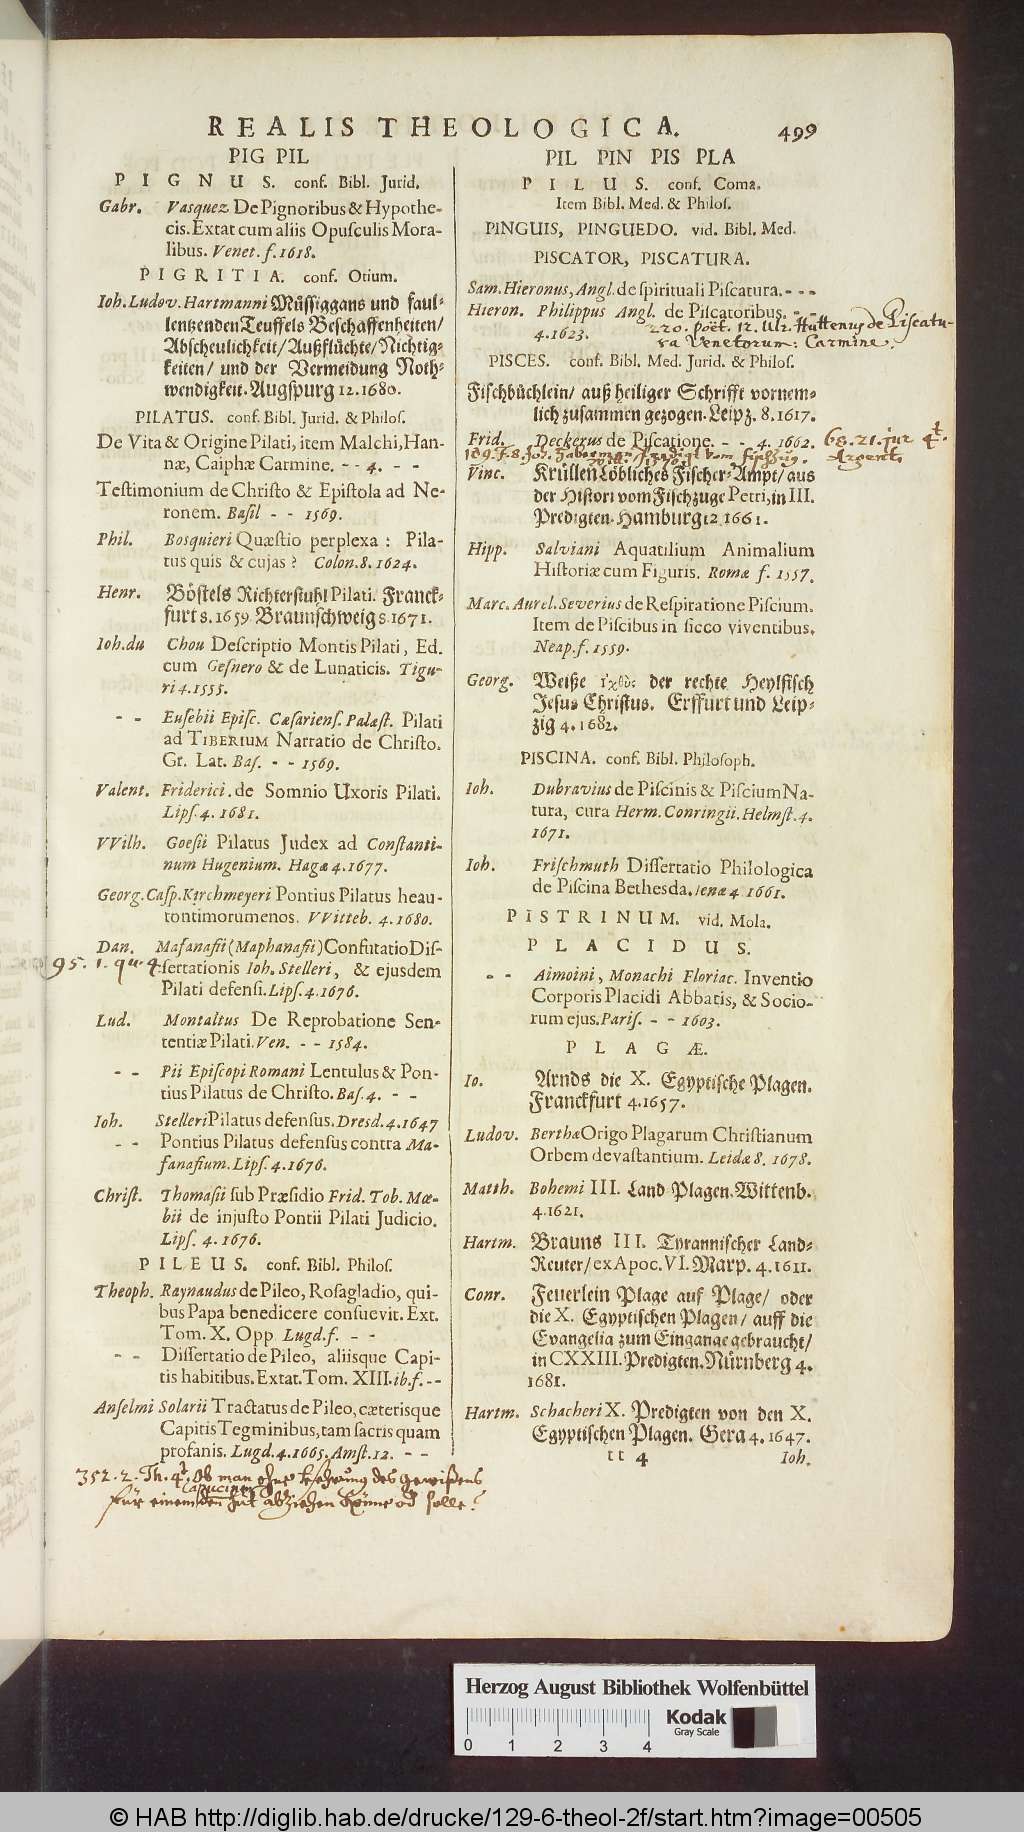 REALIS THEOLOGICA. 499
PIG PIL
PIGNUS. conf. Bibl. Jurid.
Gabr. Vasquez De Pignoribus & Hypothe-
cis. Extat cum aliis Opusculis Mora-
libus. Venet. f. 1618.
PIGRITIA. conf. Otium.
Ioh. Ludov. Hartmanni Müssiggans und faul-
lentzenden Teuffels Beschaffenheiten/
Abscheulichkeit/ Außflüchte/ Nichtig-
keiten/ und der Vermeidung Noth-
wendigkeit. Augspurg 12. 1680.
PILATUS. conf. Bibl. Jurid. & Philos.
De Vita & Origine Pilati, item Malchi, Han-
næ, Caiphæ Carmine. - - 4. - -
Testimonium de Christo & Epistola ad Ne-
ronem. Basil - - 1569.
Phil. Bosquieri Quæstio perplexa: Pila-
tus quis & cujas? Colon. 8. 1624.
Henr. Böstels Richterstuhl Pilati. Franck-
furt 8. 1659. Braunschweig 8 1671.
Ioh. du Chou Descriptio Montis Pilati, Ed.
cum Gesnero & de Lunaticis. Tigu-
ri 4. 1555.
- - Eusebii Episc. Cæsariens. Palæst. Pilati
ad TIBERIUM Narratio de Christo.
Gr. Lat. Bas. - - 1569.
Valent. Friderici. de Somnio Uxoris Pilati.
Lips. 4. 1681.
VVilh. Goesii Pilatus Judex ad Constanti-
num Hugenium. Hagæ 4. 1677.
Georg. Casp. Kirchmeyeri Pontius Pilatus heau-
tontimorumenos. VVitteb. 4. 1680.
Dan. Masanasii (Maphanasii) Confutatio Dis-
95. 1. qu. 4. sertationis Ioh. Stelleri, & ejusdem
Pilati defensi. Lips. 4. 1676.
Lud. Montaltus De Reprobatione Sen-
tentiæ Pilati. Ven. - - 1584.
- - Pii Episcopi Romani Lentulus & Pon-
tius Pilatus de Christo. Bas. 4. - -
Ioh. Stelleri Pilatus defensus. Dresd. 4. 1647
- - Pontius Pilatus defensus contra Ma-
sanasium. Lips. 4. 1676.
Christ. Thomasii sub Præsidio Frid. Tob. Mœ-
bii de injusto Pontii Pilati Judicio.
Lips. 4. 1676.
PILEUS. conf. Bibl. Philos.
Theoph. Raynaudus de Pileo, Rosagladio, qui-
bus Papa benedicere consuevit. Ext.
Tom. X. Opp. Lugd. f. - -
- - Dissertatio de Pileo, aliisque Capi-
tis habitibus. Extat. Tom. XIII. ib. f. - -
Anselmi Solarii Tractatus de Pileo, cæterisque
Capitis Tegminibus, tam sacris quam
profanis. Lugd. 4. 1665. Amst. 12. - -
352. 2. Th. 4t. Ob man ohne des gewißens
Capuciner
für einem den hut abziehen könne od solle?
PIL PIN PIS PLA
PILUS. conf. Coma.
Item Bibl. Med. & Philos.
PINGUIS, PINGUEDO. vid. Bibl. Med.
PISCATOR, PISCATURA.
Sam. Hieronus, Angl. de spirituali Piscatura. - - -
Hieron. Philippus Angl. de Piscatoribus. - -
4. 1623. 220. Poët. 12. Ulr. Huttenus de Piscatu-
ra Venetorum: Carmine.
PISCES. conf. Bibl. Med. Jurid. & Philos.
Fischbüchlein/ auß heiliger Schrifft vornem-
lich zusammen gezogen. Leipz. 8. 1617.
Frid. Deckerus de Piscatione. - - 4. 1662. 68. 21. jur 4t.
Argent.
Predigt vom Fischzug.
Vinc. Krüllen Löbliches Fischer-Ampt/ aus
der Histori vom Fischzuge Petri, in III.
Predigten. Hamburg 12 1661.
Hipp. Salviani Aquatilium Animalium
Historiæ cum Figuris. Romæ f. 1557.
Marc. Aurel. Severius de Respiratione Piscium.
Item de Piscibus in sicco viventibus.
Neap. f. 1559.
Georg. Weiße ἰχθὺς der rechte Heylfisch
Jesus Christus. Erffurt und Leip-
zig 4. 1682.
PISCINA. conf. Bibl. Philosoph.
Ioh. Dubravius de Piscinis & Piscium Na-
tura, cura Herm. Conringii. Helmst. 4.
1671.
Ioh. Frischmuth Dissertatio Philologica
de Piscina Bethesda. Ienæ 4 1661.
PISTRINUM. vid. Mola.
PLACIDUS.
- - Aimoini, Monachi Floriac. Inventio
Corporis Placidi Abbatis, & Socio-
rum ejus. Paris. - - 1603.
PLAGÆ.
Io. Arnds die X. Egyptische Plagen.
Franckfurt 4. 1657.
Ludov. Berthæ Origo Plagarum Christianum
Orbem devastantium. Leidæ 8. 1678.
Matth. Bohemi III. Land-Plagen. Wittenb.
4. 1621.
Hartm. Brauns III. Tyrannischer Land-
Reuter/ ex Apoc. VI. Marp. 4. 1611.
Conr. Feuerlein Plage auf Plage/ oder
die X. Egyptischen Plagen/ auff die
Evangelia zum Eingange gebraucht/
in CXXIII. Predigten. Nürnberg 4.
1681.
Hartm. Schacheri X. Predigten von den X.
Egyptischen Plagen. Gera 4. 1647.
tt 4 Ioh.
Herzog August Bibliothek Wolfenbüttel
0 1 2 3 4
Kodak
Gray Scale
© HAB http://diglib.hab.de/drucke/129-6-theol-2f/start.htm?image=00505